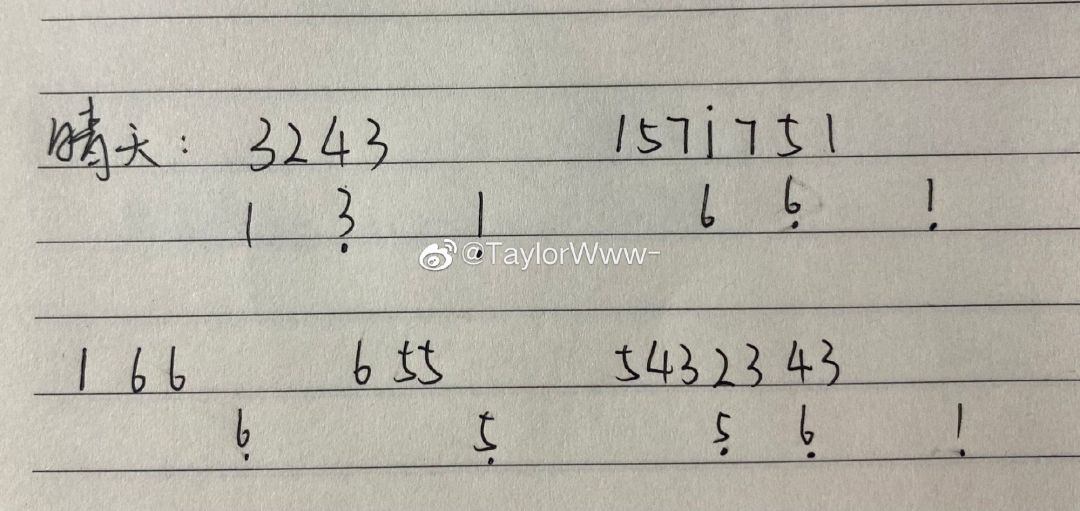 晴天: 3243 1571̇751
1 3̣ 1̣ 6 6̣ 1̣
@TaylorWww-
1 6 6 6 55 543 23 43
6̣ 5̣ 5̣ 6̣ 1̣